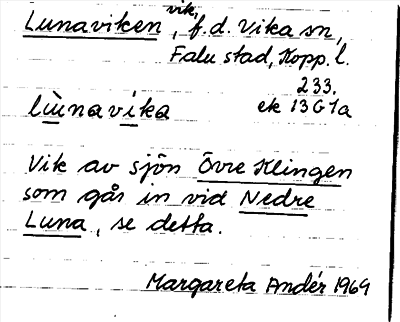 Lunaviken, vik, f.d. Vika sn,
Falu stad, Kopp. l.
233.
lùnavika ek 13G1a
Vik av sjön Övre Klingen
som går in vid Nedre
Luna, se detta.
Margareta Andér 1969